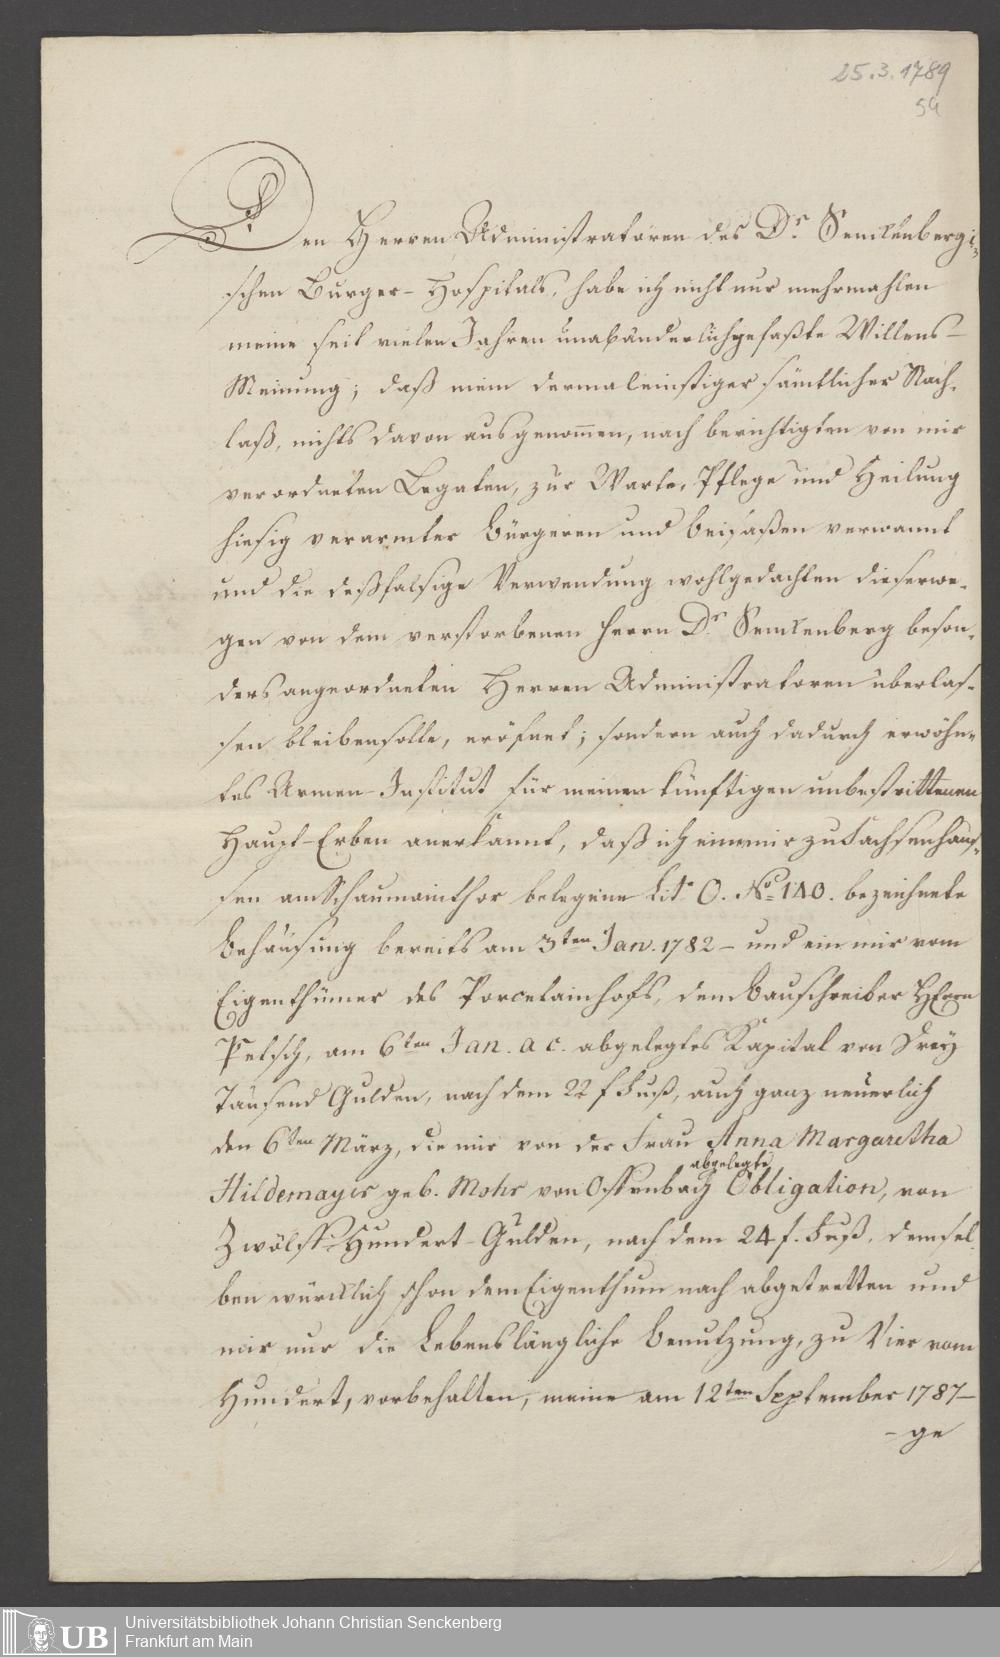 25.3.1789
54
Den Herren Administratoren des Dr. Senckenbergi-
schen Burger-Hospitals, habe ich nicht nur mehrmahlen
meine seit vielen Jahren unabänderlich gefaßte Willens-
Meinung; daß mein dermaleinstiger sämtlicher Nach-
laß, nichts davon ausgenom̄en, nach berichtigten von mir
verordneten Legaten, zur Warte, Pflege und Heilung
hiesig verarmter Bürgeren und Beisaßen verwannt
und die deßfalsige Verwendung wohlgedachten dieserwe-
gen von dem verstorbenen Herrn Dr. Senckenberg beson-
ders angeordneten Herren Administratoren überlas-
sen bleiben solle, eröfnet; sondern auch dadurch erwöhn-
tes Armen-Institut für meinen künftigen unbestrittenen
Haupt-Erben anerkannt, daß ich eine mir zu Sachsenhauß-
sen am Schaumainthor belegene Lit. O. No. 140. bezeichnete
Behäusung bereits am 3ten Jan. 1782 - und ein mir vom
Eigenthümer des Porcelainhofs, dem Bauschreiber HErrn
Petsch, am 6ten Jan. a c. abgelegtes Kapital von Drey
Tausend Gulden, nach dem 22 f Fuß, auch ganz neuerlich
den 6ten März, die mir von der Frau Anna Margaretha
Hildemayer geb. Mohr von Offenbach abgelegte Obligation, von
Zwölff-Hundert-Gulden, nach dem 24 f. Fuß, demsel-
ben würcklich schon dem Eigenthum nach abgetretten und
mir nur die Lebenslängliche Benutzung, zu Vier vom
Hundert, vorbehalten, meine am 12ten September 1787-
- ge
UB
Universitätsbibliothek Johann Christian Senckenberg
Frankfurt am Main